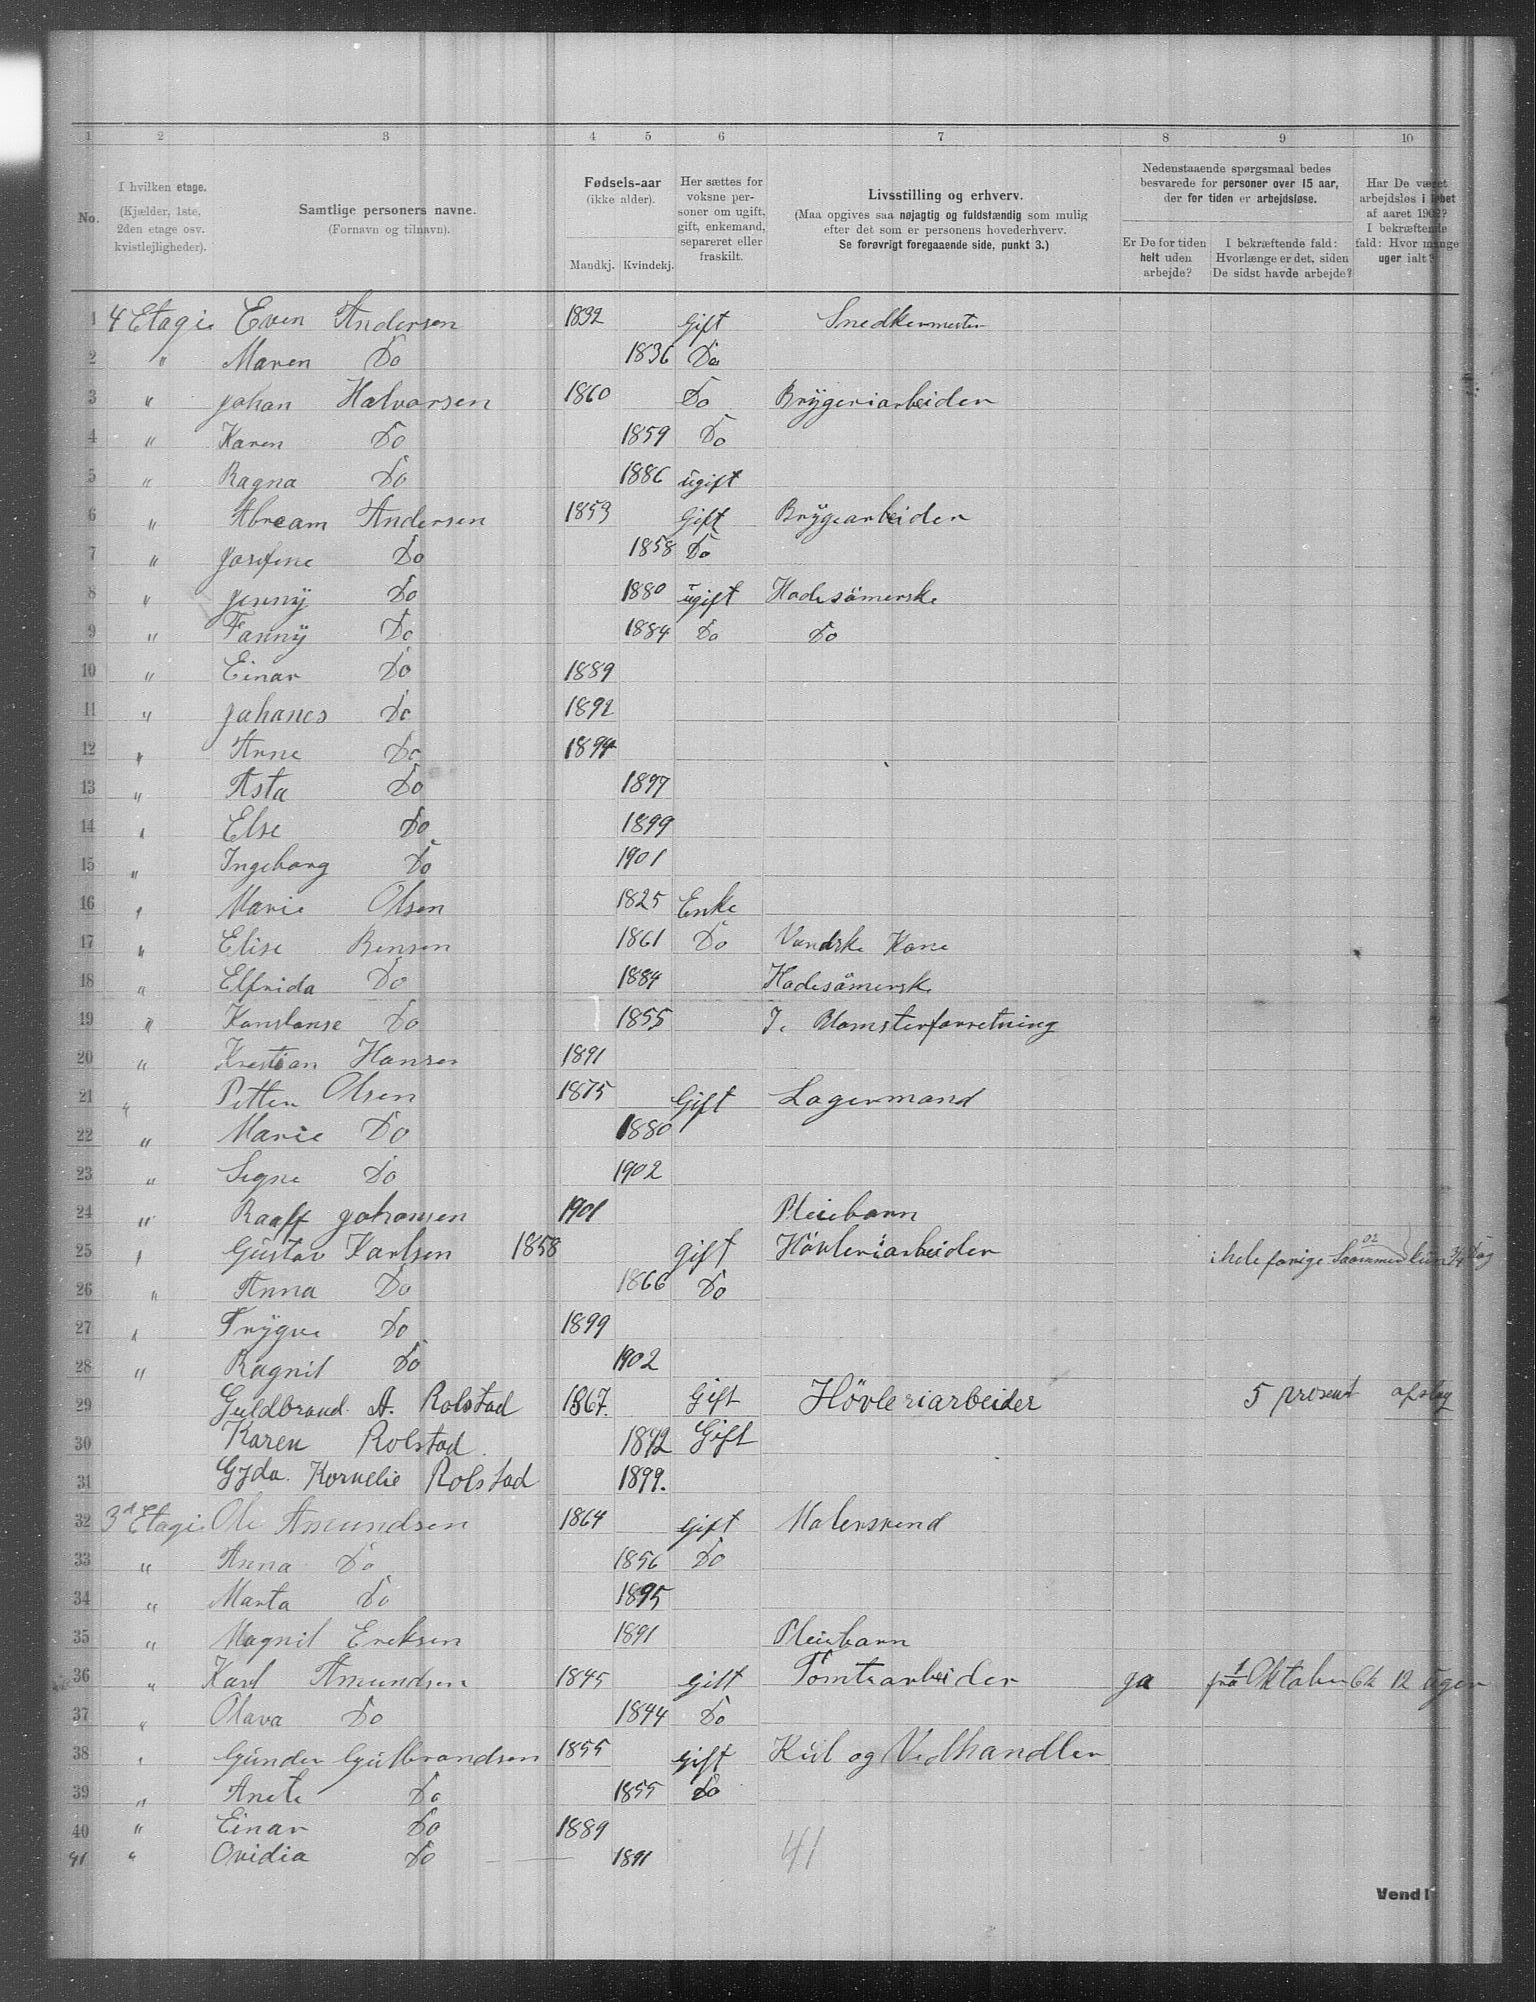 1 2 3 4 5 6 7 8 9 10
No. I hvilken etage. (Kjælder, 1ste, 2den etage osv. kvistlejligheder). Samtlige personers navne. (Fornavn og tilnavn). Fødsels-aar (ikke alder). Mandkj. Kvindekj. Her sættes for voksne personer om ugift, gift, enkemand, separeret eller fraskilt. Livsstilling og erhverv. (Maa opgives saa nøjagtig og fuldstændig som mulig efter det som er personens hovederhverv. Se forøvrigt foregaaende side, punkt 3.) Nedenstaaende spørgsmaal bedes besvarede for personer over 15 aar, der for tiden er arbejdsløse. Er De for tiden helt uden arbejde? I bekræftende fald: Hvorlænge er det, siden De sidst havde arbejde? Har De været arbejdsløs i løbet af aaret 1902? I bekræftende fald: Hvor mange uger ialt?
1 4 Etagie Even Andersen 1832 Gift Snedkermester
2 " Maren Do 1836 Do
3 " Johan Halvorsen 1860 Do Brÿgeriarbeider
4 " Karen Do 1859 Do
5 " Ragna Do 1886 ugift
6 " Abream Andersen 1853 Gift Brÿgearbeider
7 " Josefine Do 1858 Do
8 " Jenny Do 1880 ugift Kadesömerske
9 " Fanny Do 1884 Do Do
10 " Einar Do 1889
11 " Johanes Do 1892
12 " Arne Do 1894
13 " Asta Do 1897
14 " Else Do 1899
15 " Ingeborg Do 1901
16 " Marie Olsen 1825 Enke
17 " Elise Bensen 1861 Do Vandske Kone
18 " Elfrida Do 1884 Kadesömersk
19 " Konstanse Do 1855 I. Blomsterforretning
20 " Krestian Hansen 1891
21 " Petter Olsen 1875 Gift Lagermand
22 " Marie Do 1880
23 " Signe Do 1902
24 " Raaff Johansen 1901 Pleiebarn
25 " Gustav Karlsen 1858 Gift Hövleriarbeider i hele forige Saommer 02 kun 3/4 Dag
26 " Anna Do 1866 Do
27 " Trÿgve Do 1899
28 " Ragnil Do 1902
29 Guldbrand A. Rolstad 1867. Gift Hövleriarbeider 5 prosent afslag
30 Karen Rolstad 1872 Gift
31 Gyda Kornelie Rolstad 1899.
32 3d Etagie Ole Amundsen 1864 Gift Malersvend
33 " Anna Do 1856 Do
34 " Marta Do 1895
35 " Magnil Ereksen 1891 Pleiebarn
36 " Karl Amundsen 1845 Gift Tomtearbeider ja fra 1 Oktober 12 uger
37 " Olava Do 1844 Do
38 " Gunder Gulbrandsen 1855 Gift Kul og Vedhandler
39 " Anete Do 1855 Do
40 " Einar Do 1889
41 " Ovidia Do 1891
41
Vend!